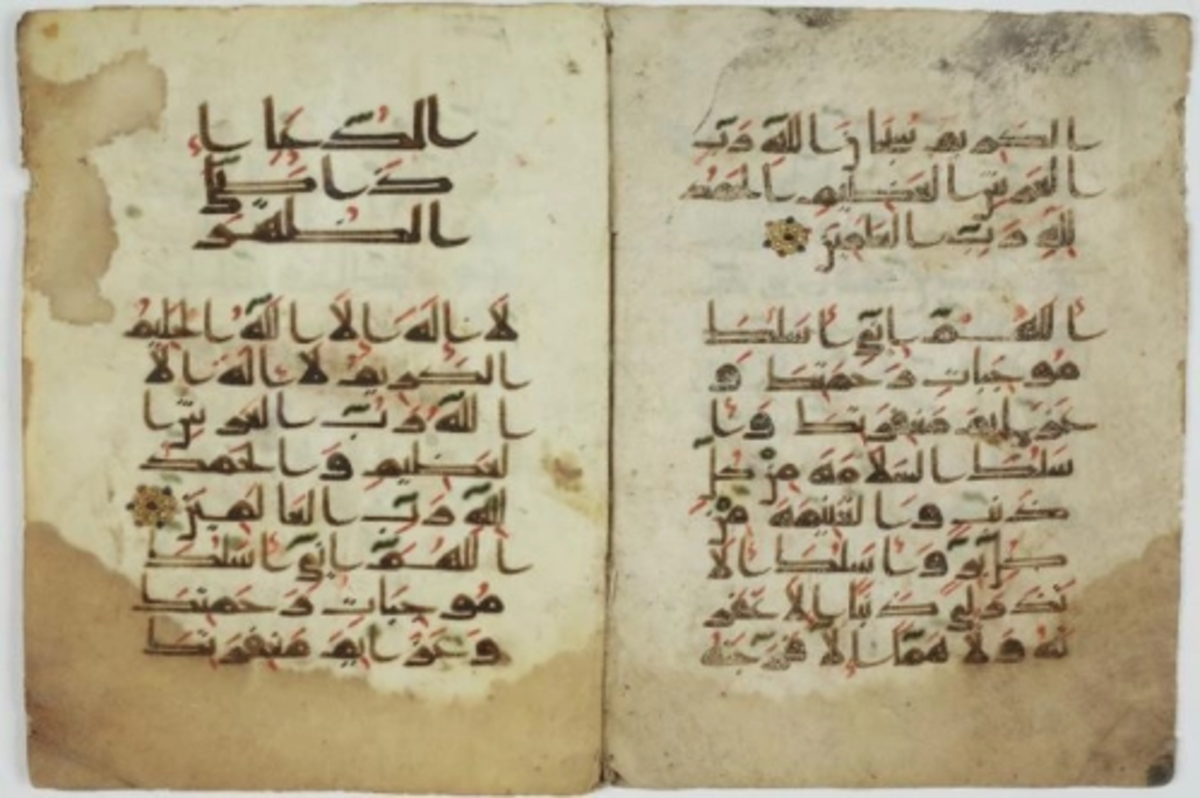 الكريم سبحان الله رب
العرش العظيم الحمد
لله رب العالمين
اللهم إني أسلك
موجبات رحمتك و
عزايم مغفرتك وأ
سلك السلامة من كل
ذنب والغنيمة من
كل بر وأسلك ألا
تدع لي ذنبا إلا غفر
ته ولا هما إلا فرجته
الدعا إ
ذا
لا إله إلا الله الحليم
الكريم لا إله إلا
الله رب العرش ا
لعظيم والحمد
لله رب العالمين
اللهم إني أسلك
موجبات رحمتك
وعزايم مغفرتك